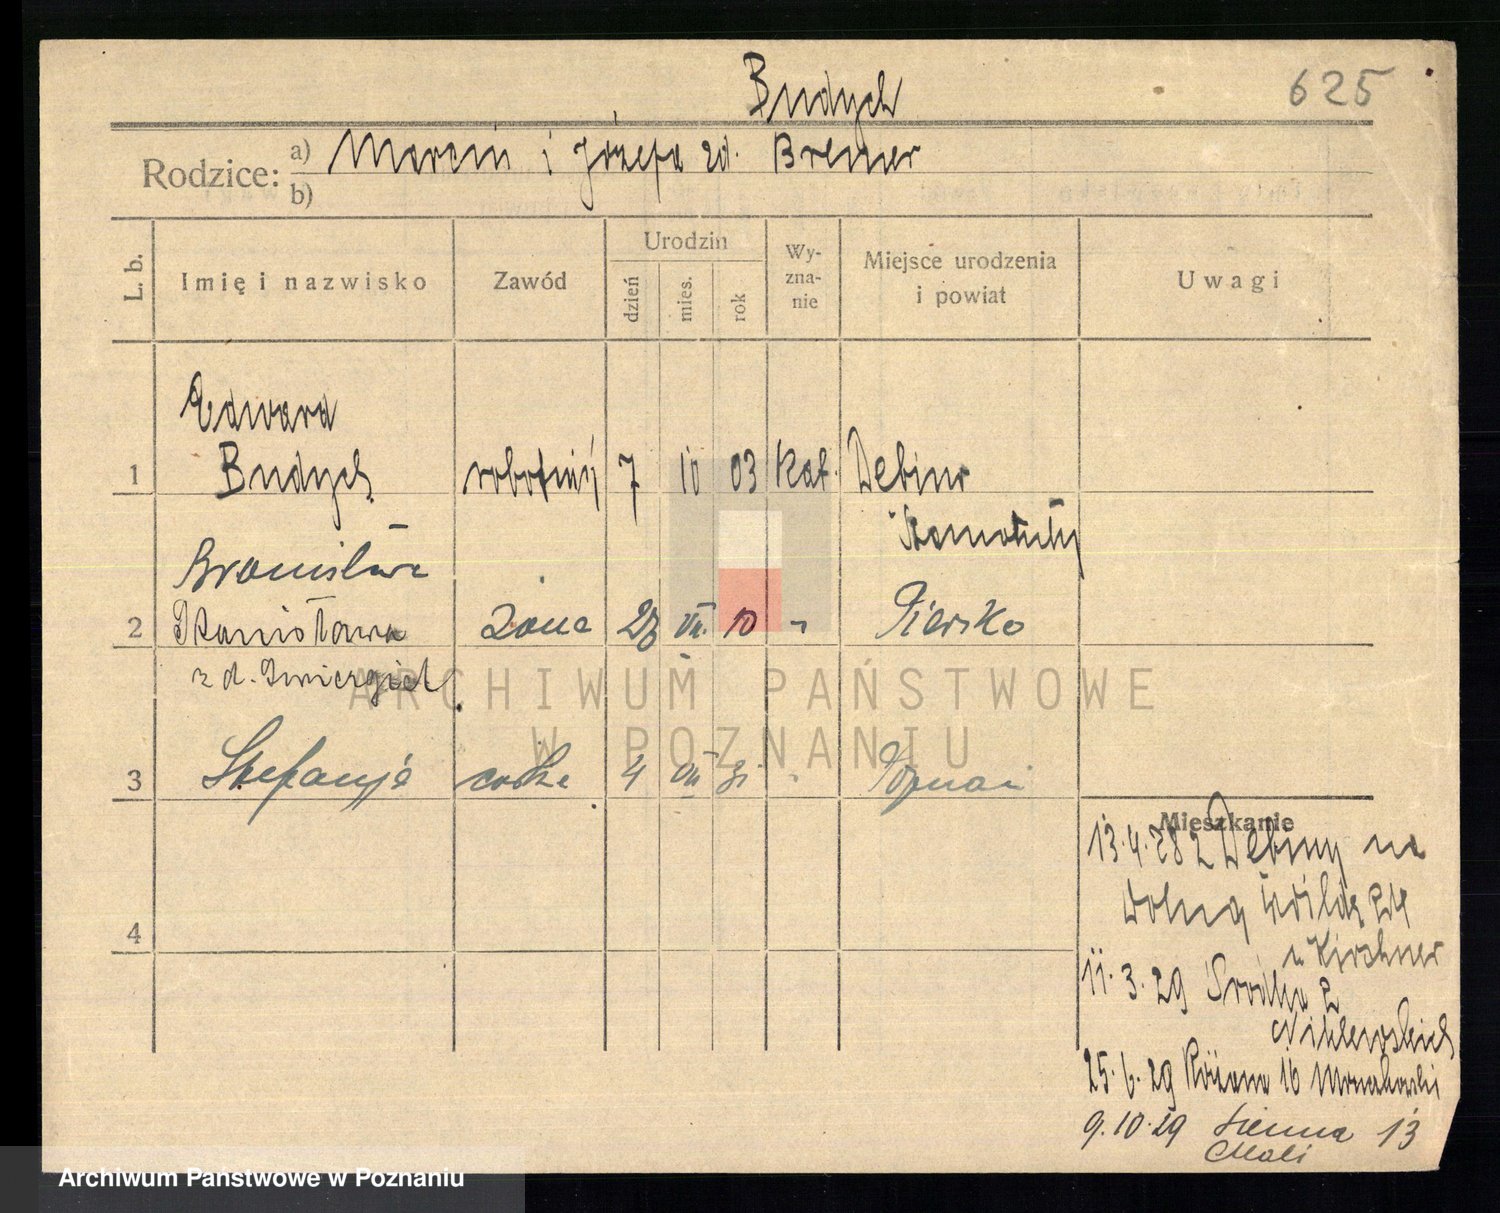 Budych
625
Rodzice: a) Marcin i Józefa zd. Bremer
b)
L. b.
Imię i nazwisko
Zawód
Urodzin
dzień
mies.
rok
Wy-
zna-
nie
Miejsce urodzenia
i powiat
Uwagi
Edward
1 Budych robotnik 7 10 03 kat. Debina
Szamotuły
Bronisława
2 Stanisława żona VII. 10 " Piersko
z d. Zwiergiel
3 Stefanja córka 4 VII 31 " Poznań
4
Mieszkanie
13.4.28 z Debiny na
Dolną Wildę
u Kirchner
11.3.29 Śródka 2
Niklewskich
25.6.29 Różana 16
9.10.29 Sienna 13
Mali
ARCHIWUM PAŃSTWOWE
W POZNANIU
Archiwum Państwowe w Poznaniu